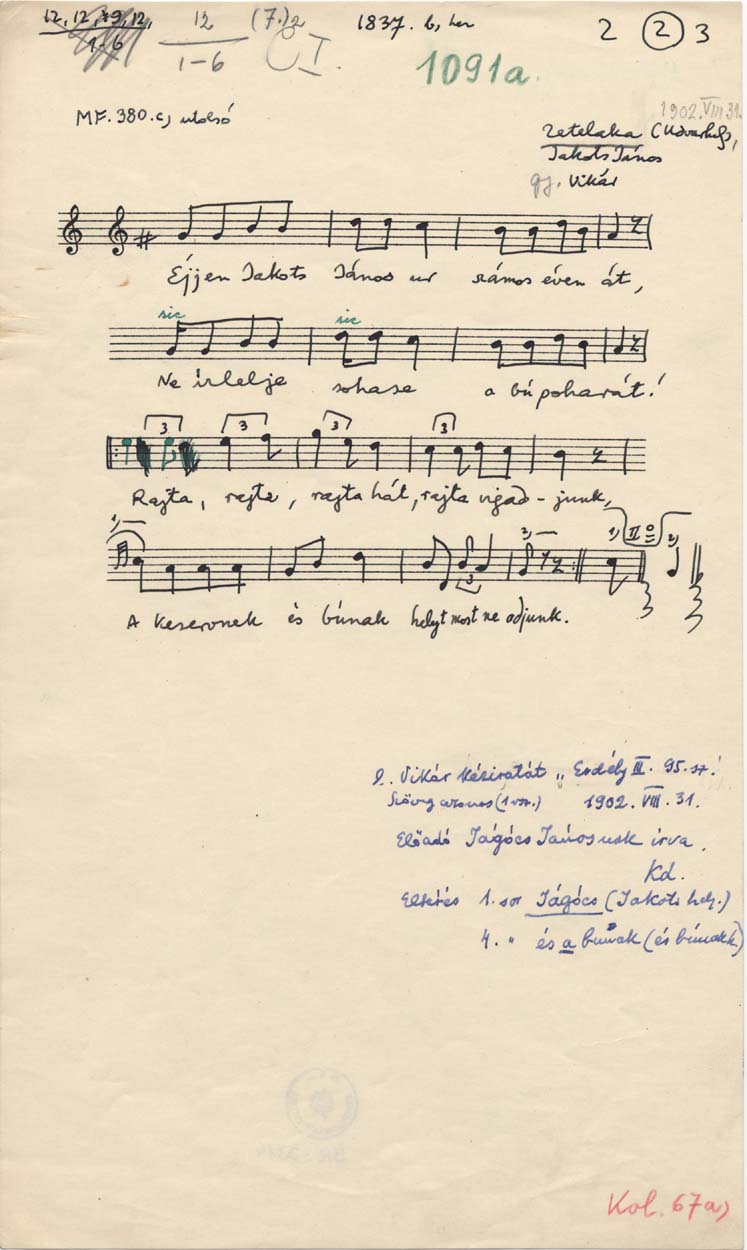 12, 12, 12, 12 (7.)2 1837. b, her 2 2 3
1-6 1-6 CI.
1091a.
1902. VIII 31.
MF. 380. c) utolsó
Zetelaka (Udvarhely),
Jakots János
gy. Vikár
Éjjen Jakots János ur sámos éven át,
sic sic
Ne izlelje sohase a bú poharát!
3 3 3 3
Rajta, rajta, rajta hát, rajta vigad-junk,
1) 2) 1) II 2)
3
A keservnek és búnak helyt most ne adjunk.
l. Vikár kéziratát „Erdély III. 95. sz.!
Szöveg azonos (1 vsz.) 1902. VIII. 31.
Előadó Jágócs Jánosnak írva.
Kd.
Eltérés 1. sor Jágócs (Jakots hely.)
4. „ és a bunak (és búnak h.)
Kol. 67a)